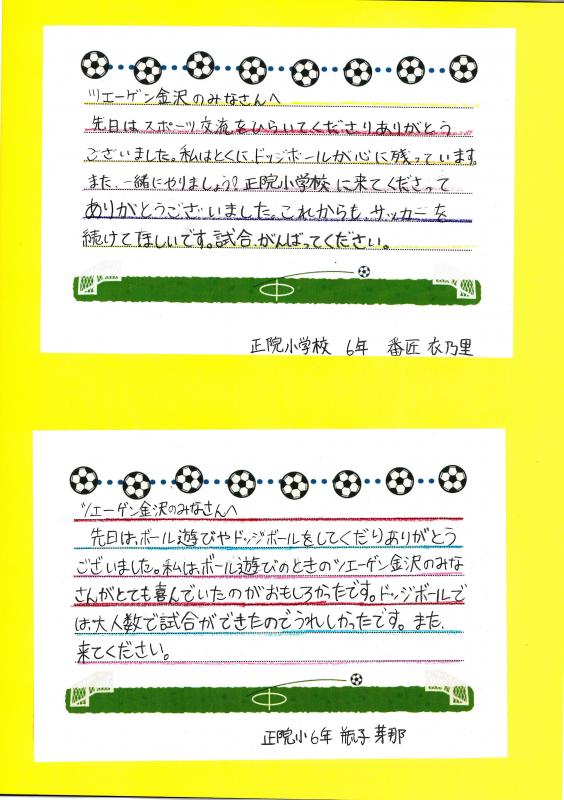 ツエーゲン金沢のみなさんへ
先日はスポーツ交流をひらいてくださりありがとう
ございました。私はとくにドッジボールが心に残っています。
また、一緒にやりましょう!正院小学校に来てくださって
ありがとうございました。これからも、サッカーを
続けてほしいです。試合、がんばってください。
正院小学校 6年 番匠 衣乃里
ツエーゲン金沢のみなさんへ
先日は、ボール遊びやドッジボールをしてくだりありがとう
ございました。私は、ボール遊びのときのツエーゲン金沢のみな
さんがとても喜んでいたのがおもしろかたです。ドッジボールで
は、大人数で試合ができたのでうれしかったです。また、
来てください。
正院小6年 瓶子 芽那